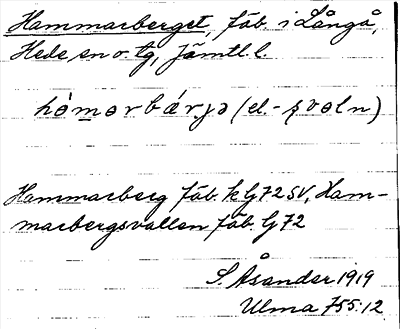 Hammarberget, fäb. i Långå,
Hede sn o. tg, Jämtl. l.
hòmorbárja (el. -
Hammarberg fäb. k G72 SV, Ham-
marbergsvallen fäb. G 72
S. Åsander 1919
Ulma 755:12